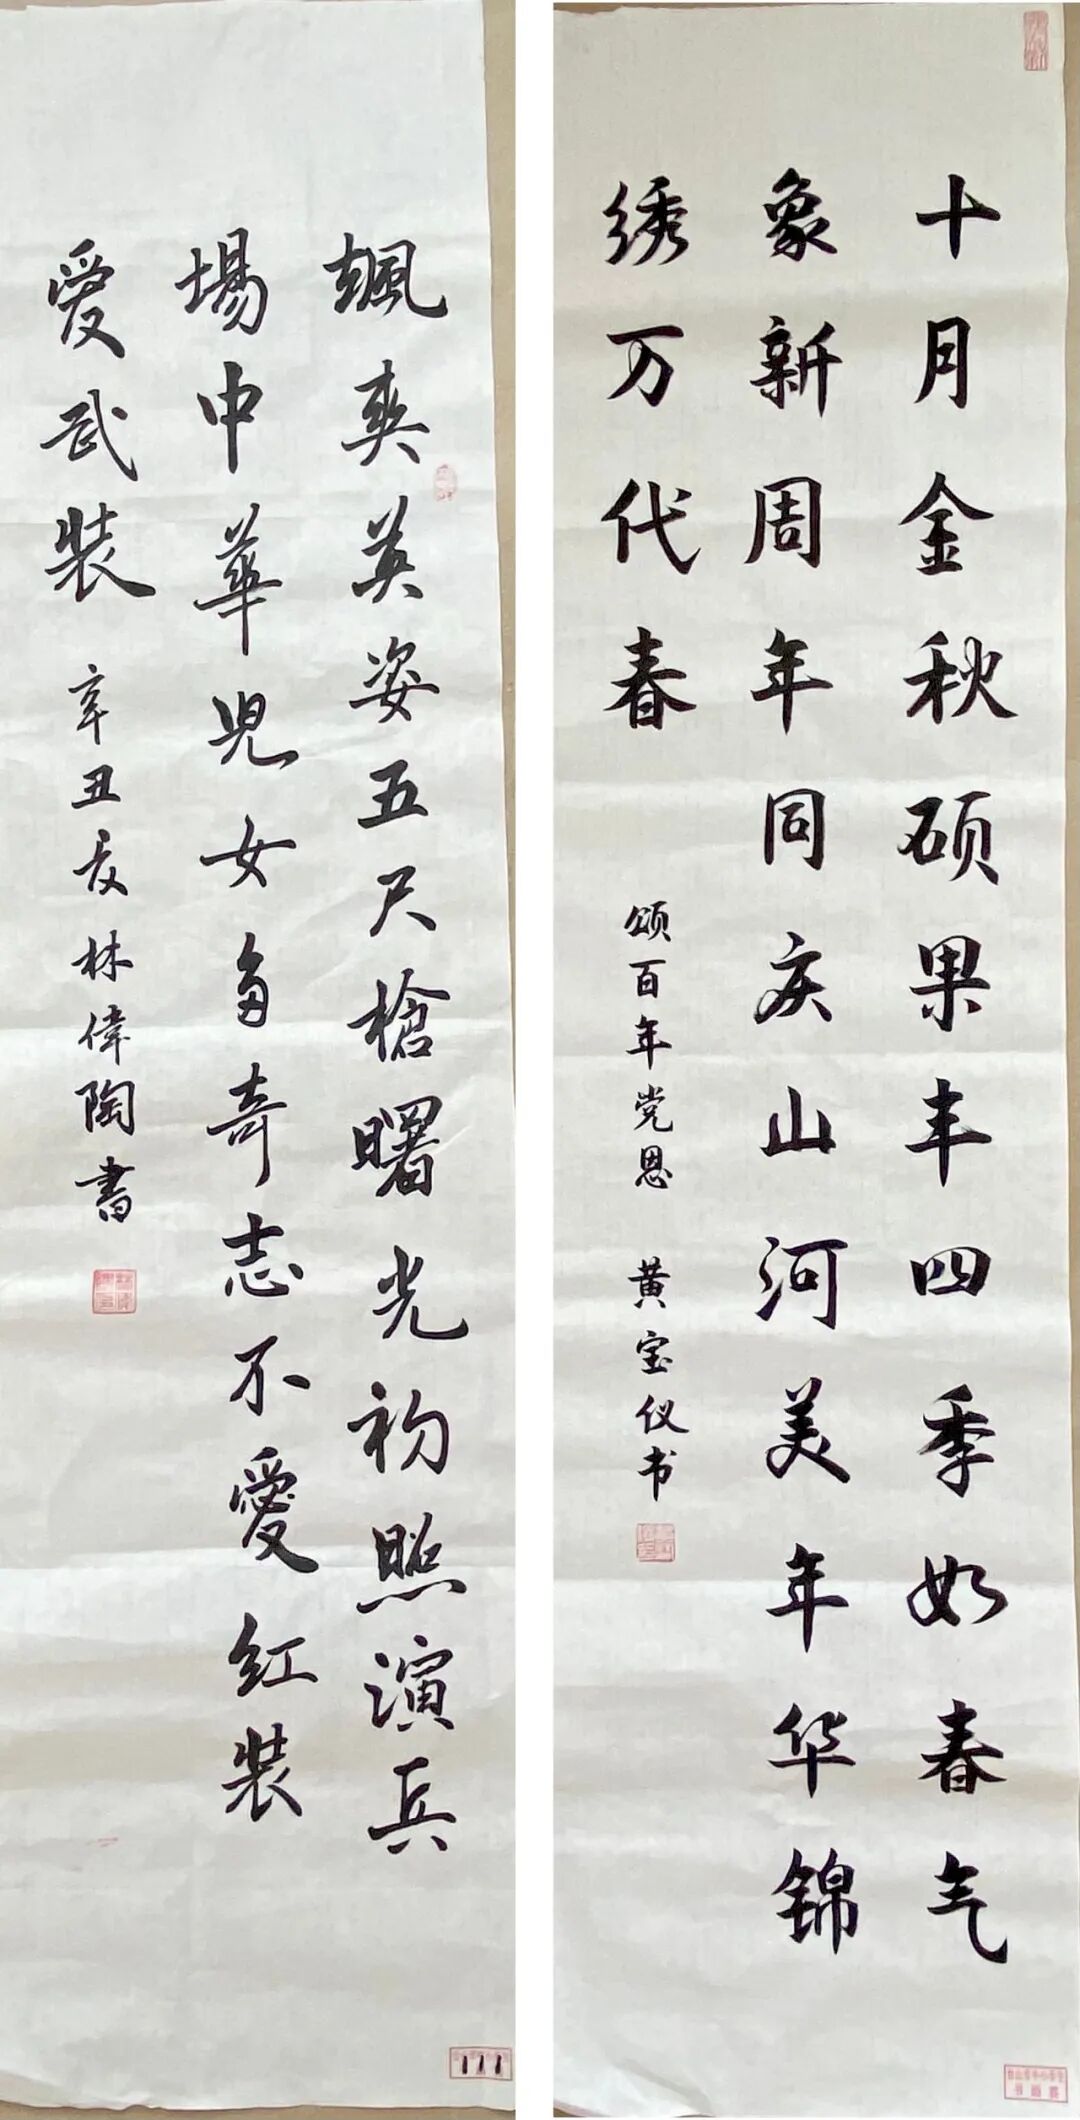 颯爽英姿五尺槍曙光初照演兵
場中華兒女多奇志不愛紅裝
愛武裝
辛丑夏林偉陶書
111
十月金秋硕果丰四季如春气
象新周年同庆山河美年华锦
绣万代春
颂百年党恩 黄宝仪书